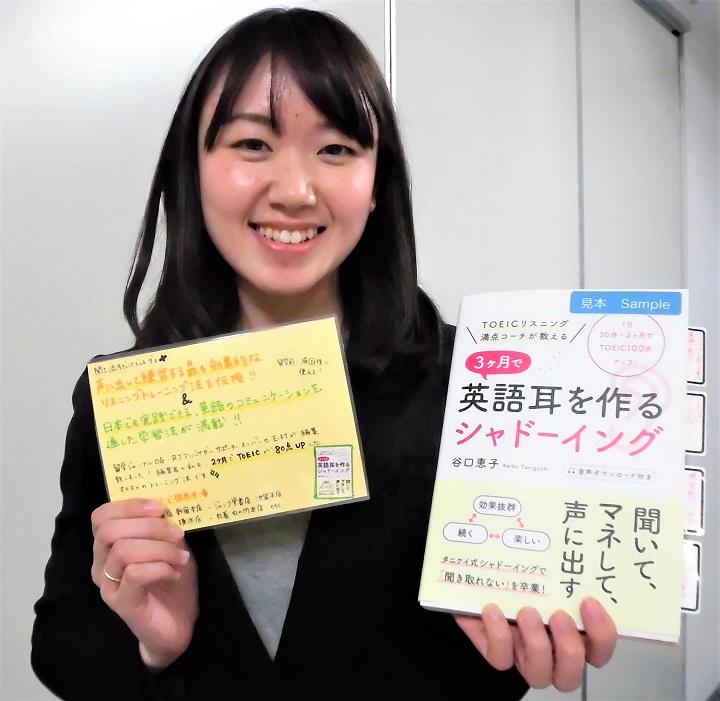 声に出して練習する最も効果的な
リスニングトレーニング法を伝授!!
&
日本でも実践できる、英語のコミュニケーションを
通した学習法が満載!!
2ヶ月でTOEICが80点UPした
見本 Sample
TOEICリスニング
満点コーチが教える
1日
30分・3ヶ月で
TOEIC100点
アップ!
3ヶ月で
英語耳を作る
シャドーイング
谷口恵子 Keiko Taniguchi
音声ダウンロード付き
効果抜群
続く
楽しい
聞いて、
マネして、
声に出す
タニケイ式シャドーイングで
「聞き取れない」を卒業!